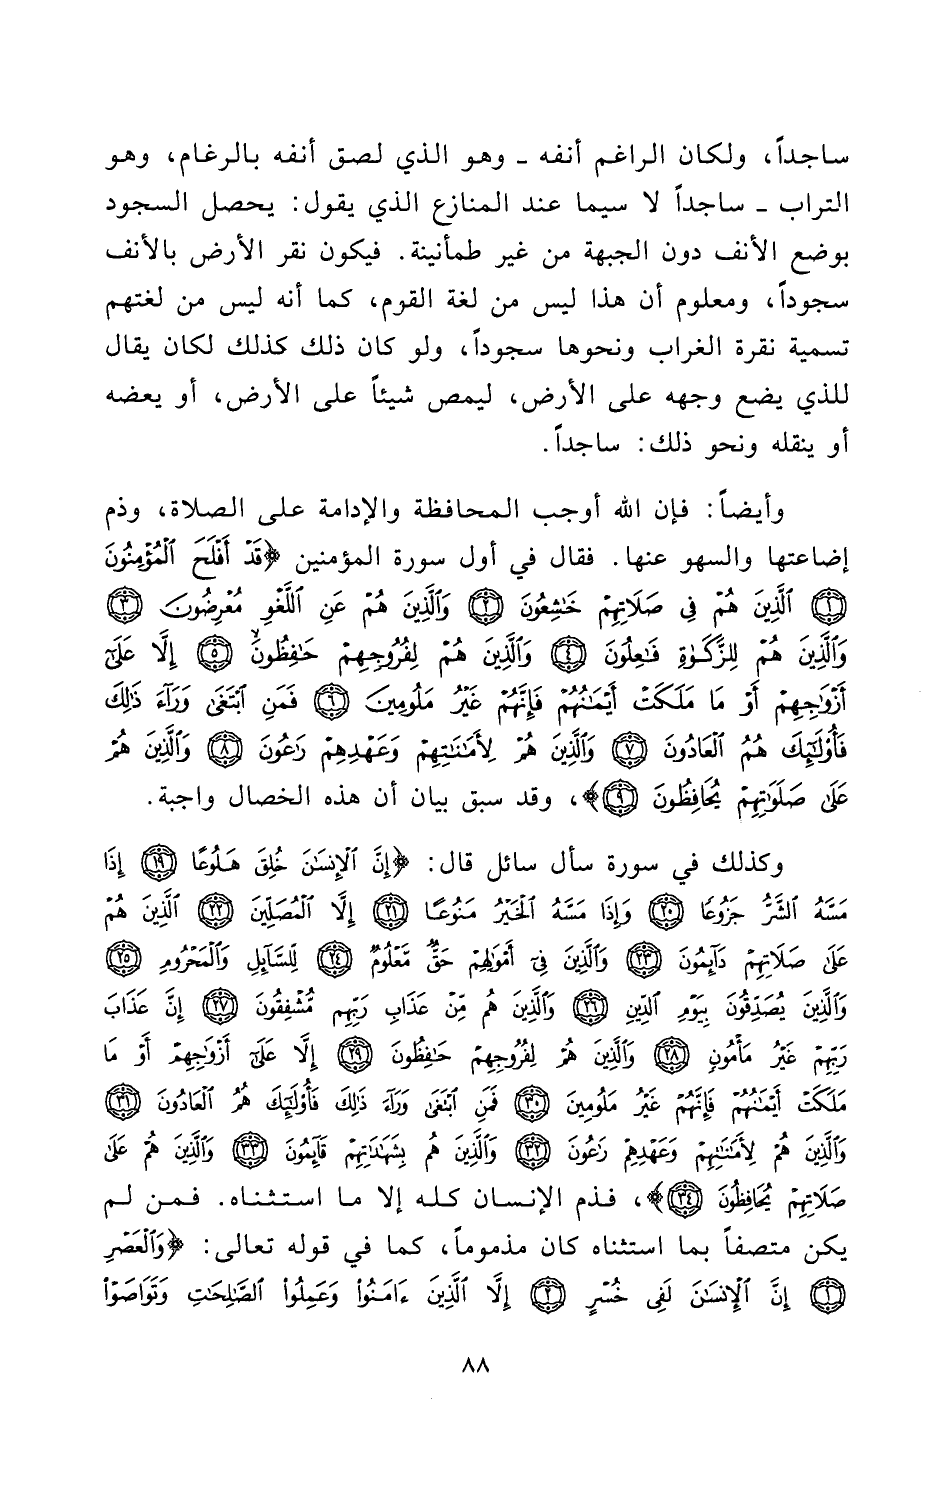 ساجداً، ولكان الراغم أنفه ـ وهو الذي لصق أنفه بالرغام، وهو
التراب ـ ساجداً لا سيما عند المنازع الذي يقول: يحصل السجود
بوضع الأنف دون الجبهة من غير طمأنينة. فيكون نقر الأرض بالأنف
سجوداً، ومعلوم أن هذا ليس من لغة القوم، كما أنه ليس من لغتهم
تسمية نقرة الغراب ونحوها سجوداً، ولو كان ذلك كذلك لكان يقال
للذي يضع وجهه على الأرض، ليمص شيئاً على الأرض، أو يعضه
أو ينقله ونحو ذلك: ساجداً.
وأيضاً: فإن الله أوجب المحافظة والإدامة على الصلاة، وذم
إضاعتها والسهو عنها. فقال في أول سورة المؤمنين ﴿قَدْ أَفْلَحَ ٱلْمُؤْمِنُونَ
﴿١﴾ ٱلَّذِينَ هُمْ فِى صَلَاتِهِمْ خَٰشِعُونَ ﴿٢﴾ وَٱلَّذِينَ هُمْ عَنِ ٱللَّغْوِ مُعْرِضُونَ ﴿٣﴾
وَٱلَّذِينَ هُمْ لِلزَّكَوٰةِ فَٰعِلُونَ ﴿٤﴾ وَٱلَّذِينَ هُمْ لِفُرُوجِهِمْ حَٰفِظُونَ ﴿٥﴾ إِلَّا عَلَىٰٓ
أَزْوَٰجِهِمْ أَوْ مَا مَلَكَتْ أَيْمَٰنُهُمْ فَإِنَّهُمْ غَيْرُ مَلُومِينَ ﴿٦﴾ فَمَنِ ٱبْتَغَىٰ وَرَآءَ ذَٰلِكَ
فَأُو۟لَٰٓئِكَ هُمُ ٱلْعَادُونَ ﴿٧﴾ وَٱلَّذِينَ هُمْ لِأَمَٰنَٰتِهِمْ وَعَهْدِهِمْ رَٰعُونَ ﴿٨﴾ وَٱلَّذِينَ هُمْ
عَلَىٰ صَلَوَٰتِهِمْ يُحَافِظُونَ ﴿٩﴾﴾، وقد سبق بيان أن هذه الخصال واجبة.
وكذلك في سورة سأل سائل قال: ﴿إِنَّ ٱلْإِنسَٰنَ خُلِقَ هَلُوعًا ﴿١٩﴾ إِذَا
مَسَّهُ ٱلشَّرُّ جَزُوعًا ﴿٢٠﴾ وَإِذَا مَسَّهُ ٱلْخَيْرُ مَنُوعًا ﴿٢١﴾ إِلَّا ٱلْمُصَلِّينَ ﴿٢٢﴾ ٱلَّذِينَ هُمْ
عَلَىٰ صَلَاتِهِمْ دَآئِمُونَ ﴿٢٣﴾ وَٱلَّذِينَ فِىٓ أَمْوَٰلِهِمْ حَقٌّ مَّعْلُومٌ ﴿٢٤﴾ لِّلسَّآئِلِ وَٱلْمَحْرُومِ ﴿٢٥﴾
وَٱلَّذِينَ يُصَدِّقُونَ بِيَوْمِ ٱلدِّينِ ﴿٢٦﴾ وَٱلَّذِينَ هُم مِّنْ عَذَابِ رَبِّهِم مُّشْفِقُونَ ﴿٢٧﴾ إِنَّ عَذَابَ
رَبِّهِمْ غَيْرُ مَأْمُونٍ ﴿٢٨﴾ وَٱلَّذِينَ هُمْ لِفُرُوجِهِمْ حَٰفِظُونَ ﴿٢٩﴾ إِلَّا عَلَىٰٓ أَزْوَٰجِهِمْ أَوْ مَا
مَلَكَتْ أَيْمَٰنُهُمْ فَإِنَّهُمْ غَيْرُ مَلُومِينَ ﴿٣٠﴾ فَمَنِ ٱبْتَغَىٰ وَرَآءَ ذَٰلِكَ فَأُو۟لَٰٓئِكَ هُمُ ٱلْعَادُونَ ﴿٣١﴾
وَٱلَّذِينَ هُمْ لِأَمَٰنَٰتِهِمْ وَعَهْدِهِمْ رَٰعُونَ ﴿٣٢﴾ وَٱلَّذِينَ هُم بِشَهَٰدَٰتِهِمْ قَآئِمُونَ ﴿٣٣﴾ وَٱلَّذِينَ هُمْ عَلَىٰ
صَلَاتِهِمْ يُحَافِظُونَ ﴿٣٤﴾﴾، فذم الإنسان كله إلا ما استثناه. فمن لم
يكن متصفاً بما استثناه كان مذموماً، كما في قوله تعالى: ﴿وَٱلْعَصْرِ
﴿١﴾ إِنَّ ٱلْإِنسَٰنَ لَفِى خُسْرٍ ﴿٢﴾ إِلَّا ٱلَّذِينَ ءَامَنُوا۟ وَعَمِلُوا۟ ٱلصَّٰلِحَٰتِ وَتَوَاصَوْا۟
٨٨